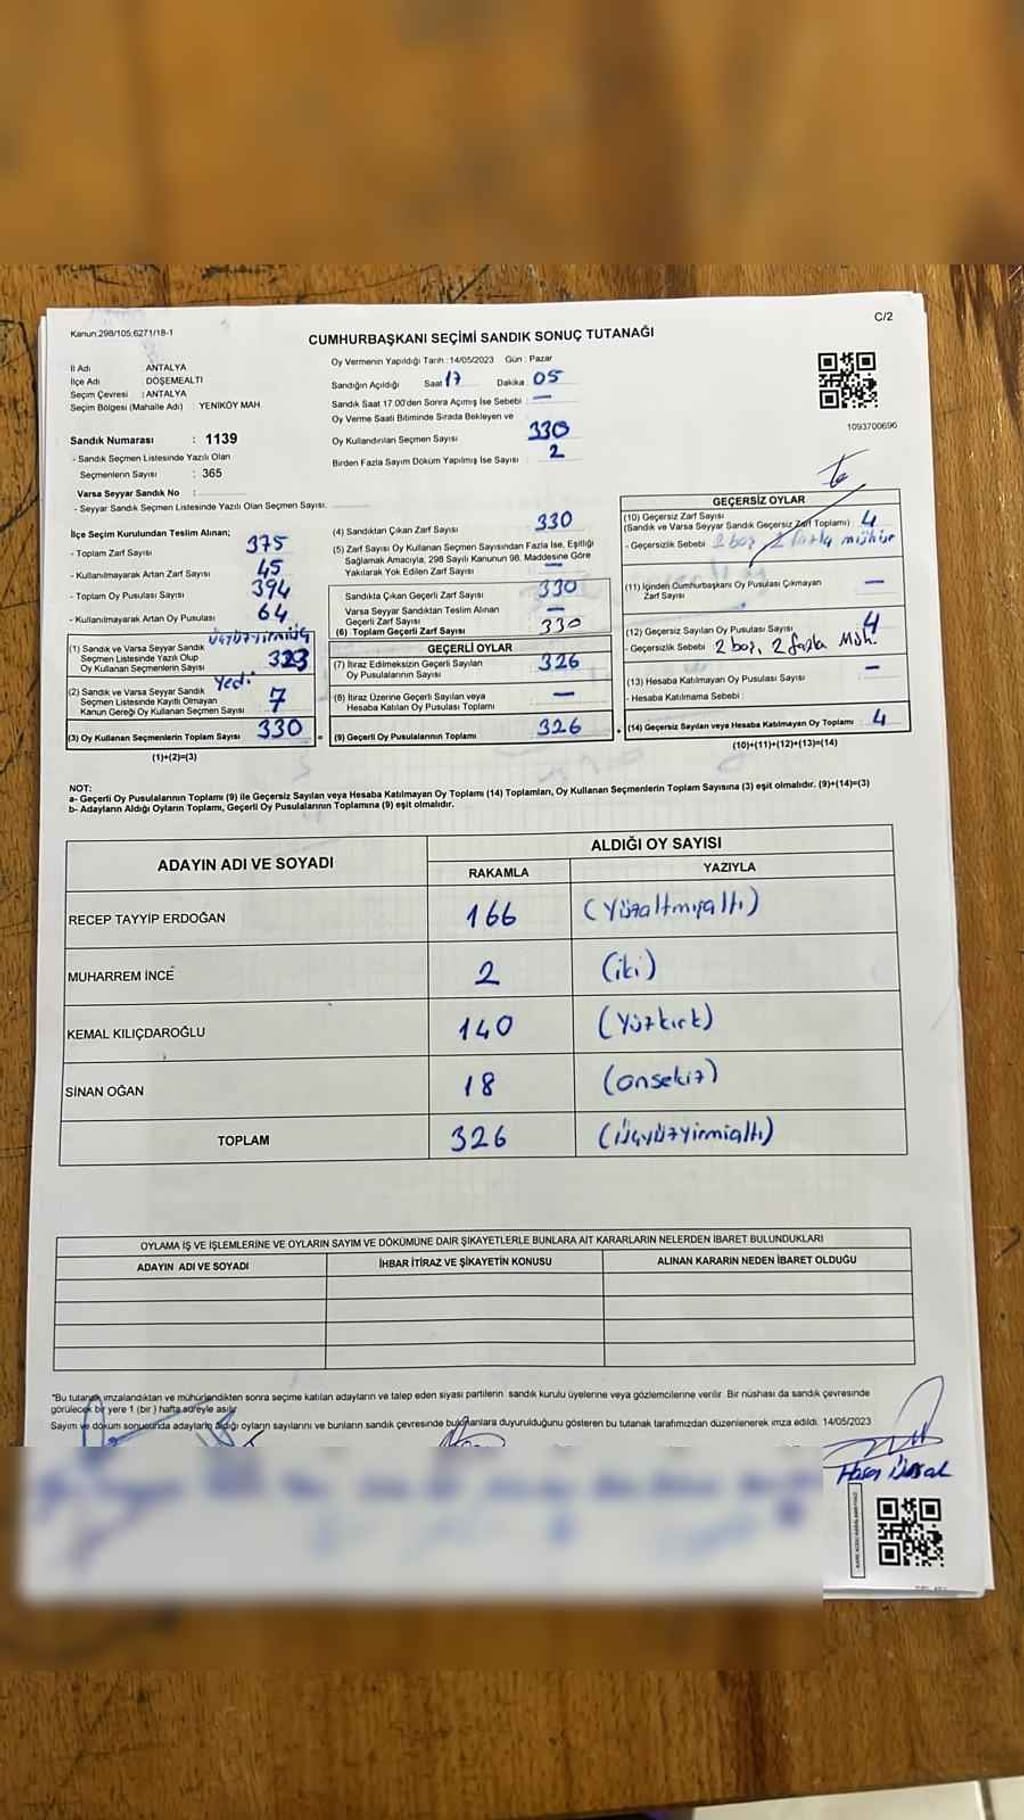 Kanun:298/105,6271/18-1
C/2
CUMHURBAŞKANI SEÇİMİ SANDIK SONUÇ TUTANAĞI
İl Adı ANTALYA
İlçe Adı DÖŞEMEALTI
Seçim Çevresi : ANTALYA
Seçim Bölgesi (Mahalle Adı) : YENİKÖY MAH.
Sandık Numarası : 1139
- Sandık Seçmen Listesinde Yazılı Olan
Seçmenlerin Sayısı : 365
Varsa Seyyar Sandık No :
- Seyyar Sandık Seçmen Listesinde Yazılı Olan Seçmen Sayısı:
Oy Vermenin Yapıldığı Tarih : 14/05/2023 Gün : Pazar
Sandığın Açıldığı Saat 17 Dakika : 05
Sandık Saat 17.00'den Sonra Açılmış İse Sebebi : —
Oy Verme Saati Bitiminde Sırada Bekleyen ve
Oy Kullandırılan Seçmen Sayısı 330
Birden Fazla Sayım Döküm Yapılmış İse Sayısı : 2
1093700696
İlçe Seçim Kurulundan Teslim Alınan;
- Toplam Zarf Sayısı 375
- Kullanılmayarak Artan Zarf Sayısı 45
- Toplam Oy Pusulası Sayısı 394
- Kullanılmayarak Artan Oy Pusulası 64
üçyüzyirmiüç
(1) Sandık ve Varsa Seyyar Sandık
Seçmen Listesinde Yazılı Olup
Oy Kullanan Seçmenlerin Sayısı 323
Yedi
(2) Sandık ve Varsa Seyyar Sandık
Seçmen Listesinde Kayıtlı Olmayan
Kanun Gereği Oy Kullanan Seçmen Sayısı 7
(3) Oy Kullanan Seçmenlerin Toplam Sayısı 330
(1)+(2)=(3)
(4) Sandıktan Çıkan Zarf Sayısı 330
(5) Zarf Sayısı Oy Kullanan Seçmen Sayısından Fazla İse, Eşitliği
Sağlamak Amacıyla, 298 Sayılı Kanunun 98. Maddesine Göre
Yakılarak Yok Edilen Zarf Sayısı —
Sandıkta Çıkan Geçerli Zarf Sayısı 330
Varsa Seyyar Sandıktan Teslim Alınan
Geçerli Zarf Sayısı —
(6) Toplam Geçerli Zarf Sayısı 330
GEÇERLİ OYLAR
(7) İtiraz Edilmeksizin Geçerli Sayılan
Oy Pusulalarının Sayısı 326
(8) İtiraz Üzerine Geçerli Sayılan veya
Hesaba Katılan Oy Pusulası Toplamı —
(9) Geçerli Oy Pusulalarının Toplamı 326
GEÇERSİZ OYLAR
(10) Geçersiz Zarf Sayısı
(Sandık ve Varsa Seyyar Sandık Geçersiz Zarf Toplamı) : 4
- Geçersizlik Sebebi 2 boş, 2 fazla mühür
(11) İçinden Cumhurbaşkanı Oy Pusulası Çıkmayan
Zarf Sayısı —
(12) Geçersiz Sayılan Oy Pusulası Sayısı 4
- Geçersizlik Sebebi 2 boş, 2 fazla Müh.
(13) Hesaba Katılmayan Oy Pusulası Sayısı —
- Hesaba Katılmama Sebebi :
(14) Geçersiz Sayılan veya Hesaba Katılmayan Oy Toplamı 4
(10)+(11)+(12)+(13)=(14)
NOT:
a- Geçerli Oy Pusulalarının Toplamı (9) ile Geçersiz Sayılan veya Hesaba Katılmayan Oy Toplamı (14) Toplamları, Oy Kullanan Seçmenlerin Toplam Sayısına (3) eşit olmalıdır. (9)+(14)=(3)
b- Adayların Aldığı Oyların Toplamı, Geçerli Oy Pusulalarının Toplamına (9) eşit olmalıdır.
ADAYIN ADI VE SOYADI ALDIĞI OY SAYISI
RAKAMLA YAZIYLA
RECEP TAYYİP ERDOĞAN 166 (Yüzaltmışaltı)
MUHARREM İNCE 2 (iki)
KEMAL KILIÇDAROĞLU 140 (Yüzkırk)
SİNAN OĞAN 18 (onsekiz)
TOPLAM 326 (üçyüzyirmialtı)
OYLAMA İŞ VE İŞLEMLERİNE VE OYLARIN SAYIM VE DÖKÜMÜNE DAİR ŞİKAYETLERLE BUNLARA AİT KARARLARIN NELERDEN İBARET BULUNDUKLARI
ADAYIN ADI VE SOYADI İHBAR İTİRAZ VE ŞİKAYETİN KONUSU ALINAN KARARIN NEDEN İBARET OLDUĞU
"Bu tutanak imzalandıktan ve mühürlendikten sonra seçime katılan adayların ve talep eden siyasi partilerin sandık kurulu üyelerine veya gözlemcilerine verilir. Bir nüshası da sandık çevresinde
görülecek bir yere 1 (bir) hafta süreyle asılır.
Sayım ve döküm sonucunda adayların aldığı oyların sayılarını ve bunların sandık çevresinde bulunanlara duyurulduğunu gösteren bu tutanak tarafımızdan düzenlenerek imza edildi. 14/05/2023